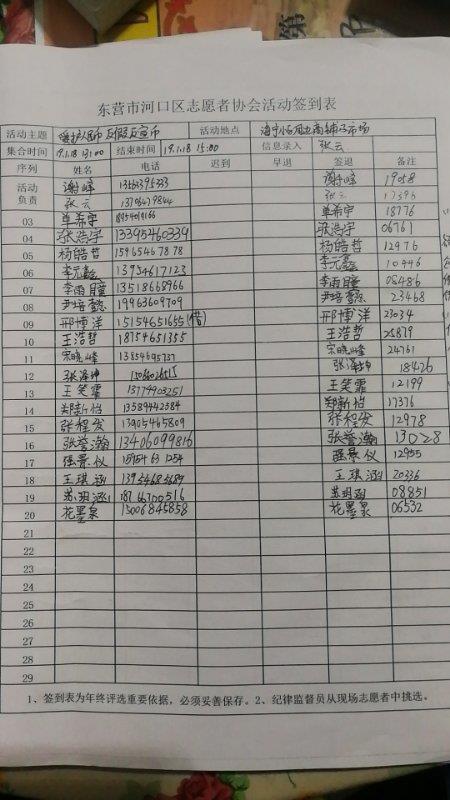 东营市河口区志愿者协会活动签到表
活动主题 爱护人民币 反假反宣币 活动地点
集合时间 19.1.18 13:00 结束时间 19.1.18 15:00 信息录入 张云
序列 姓名 电话 迟到 早退 签退 备注
活动负责 谢峰 谢峰 19058
张云 张云
03 单希宇 单希宇 18776
04 张浩宇 13395460339 张浩宇 06761
05 杨皓哲 15965467878 杨皓哲 12976
06 李元鑫 13954617123 李元鑫 10446
07 李雨瞳 13518668966 李雨瞳 08486
08 尹培懿 19963609709 尹培懿 23468
09 邢博洋 15154651655(借) 邢博洋 23034
10 王浩哲 18754651355 王浩哲 25879
11 宋晓峰 13854695737 宋晓峰 24761
12 张泽坤 张泽坤 18426
13 王笑霏 13774903251 王笑霏 12199
14 郑新怡 13589442584 郑新怡 17376
15 张程发 13905465809 张程发 12978
16 张誉瀚 13406099816 张誉瀚 13028
17 强景仪 强景仪 12955
18 王琪涵 王琪涵 20336
19 苏玥涵 18766700516 苏玥涵 08851
20 花墨泉 15006845858 花墨泉 06532
21
22
23
24
25
26
27
28
29
1、签到表为年终评选重要依据,必须妥善保存。2、纪律监督员从现场志愿者中挑选。